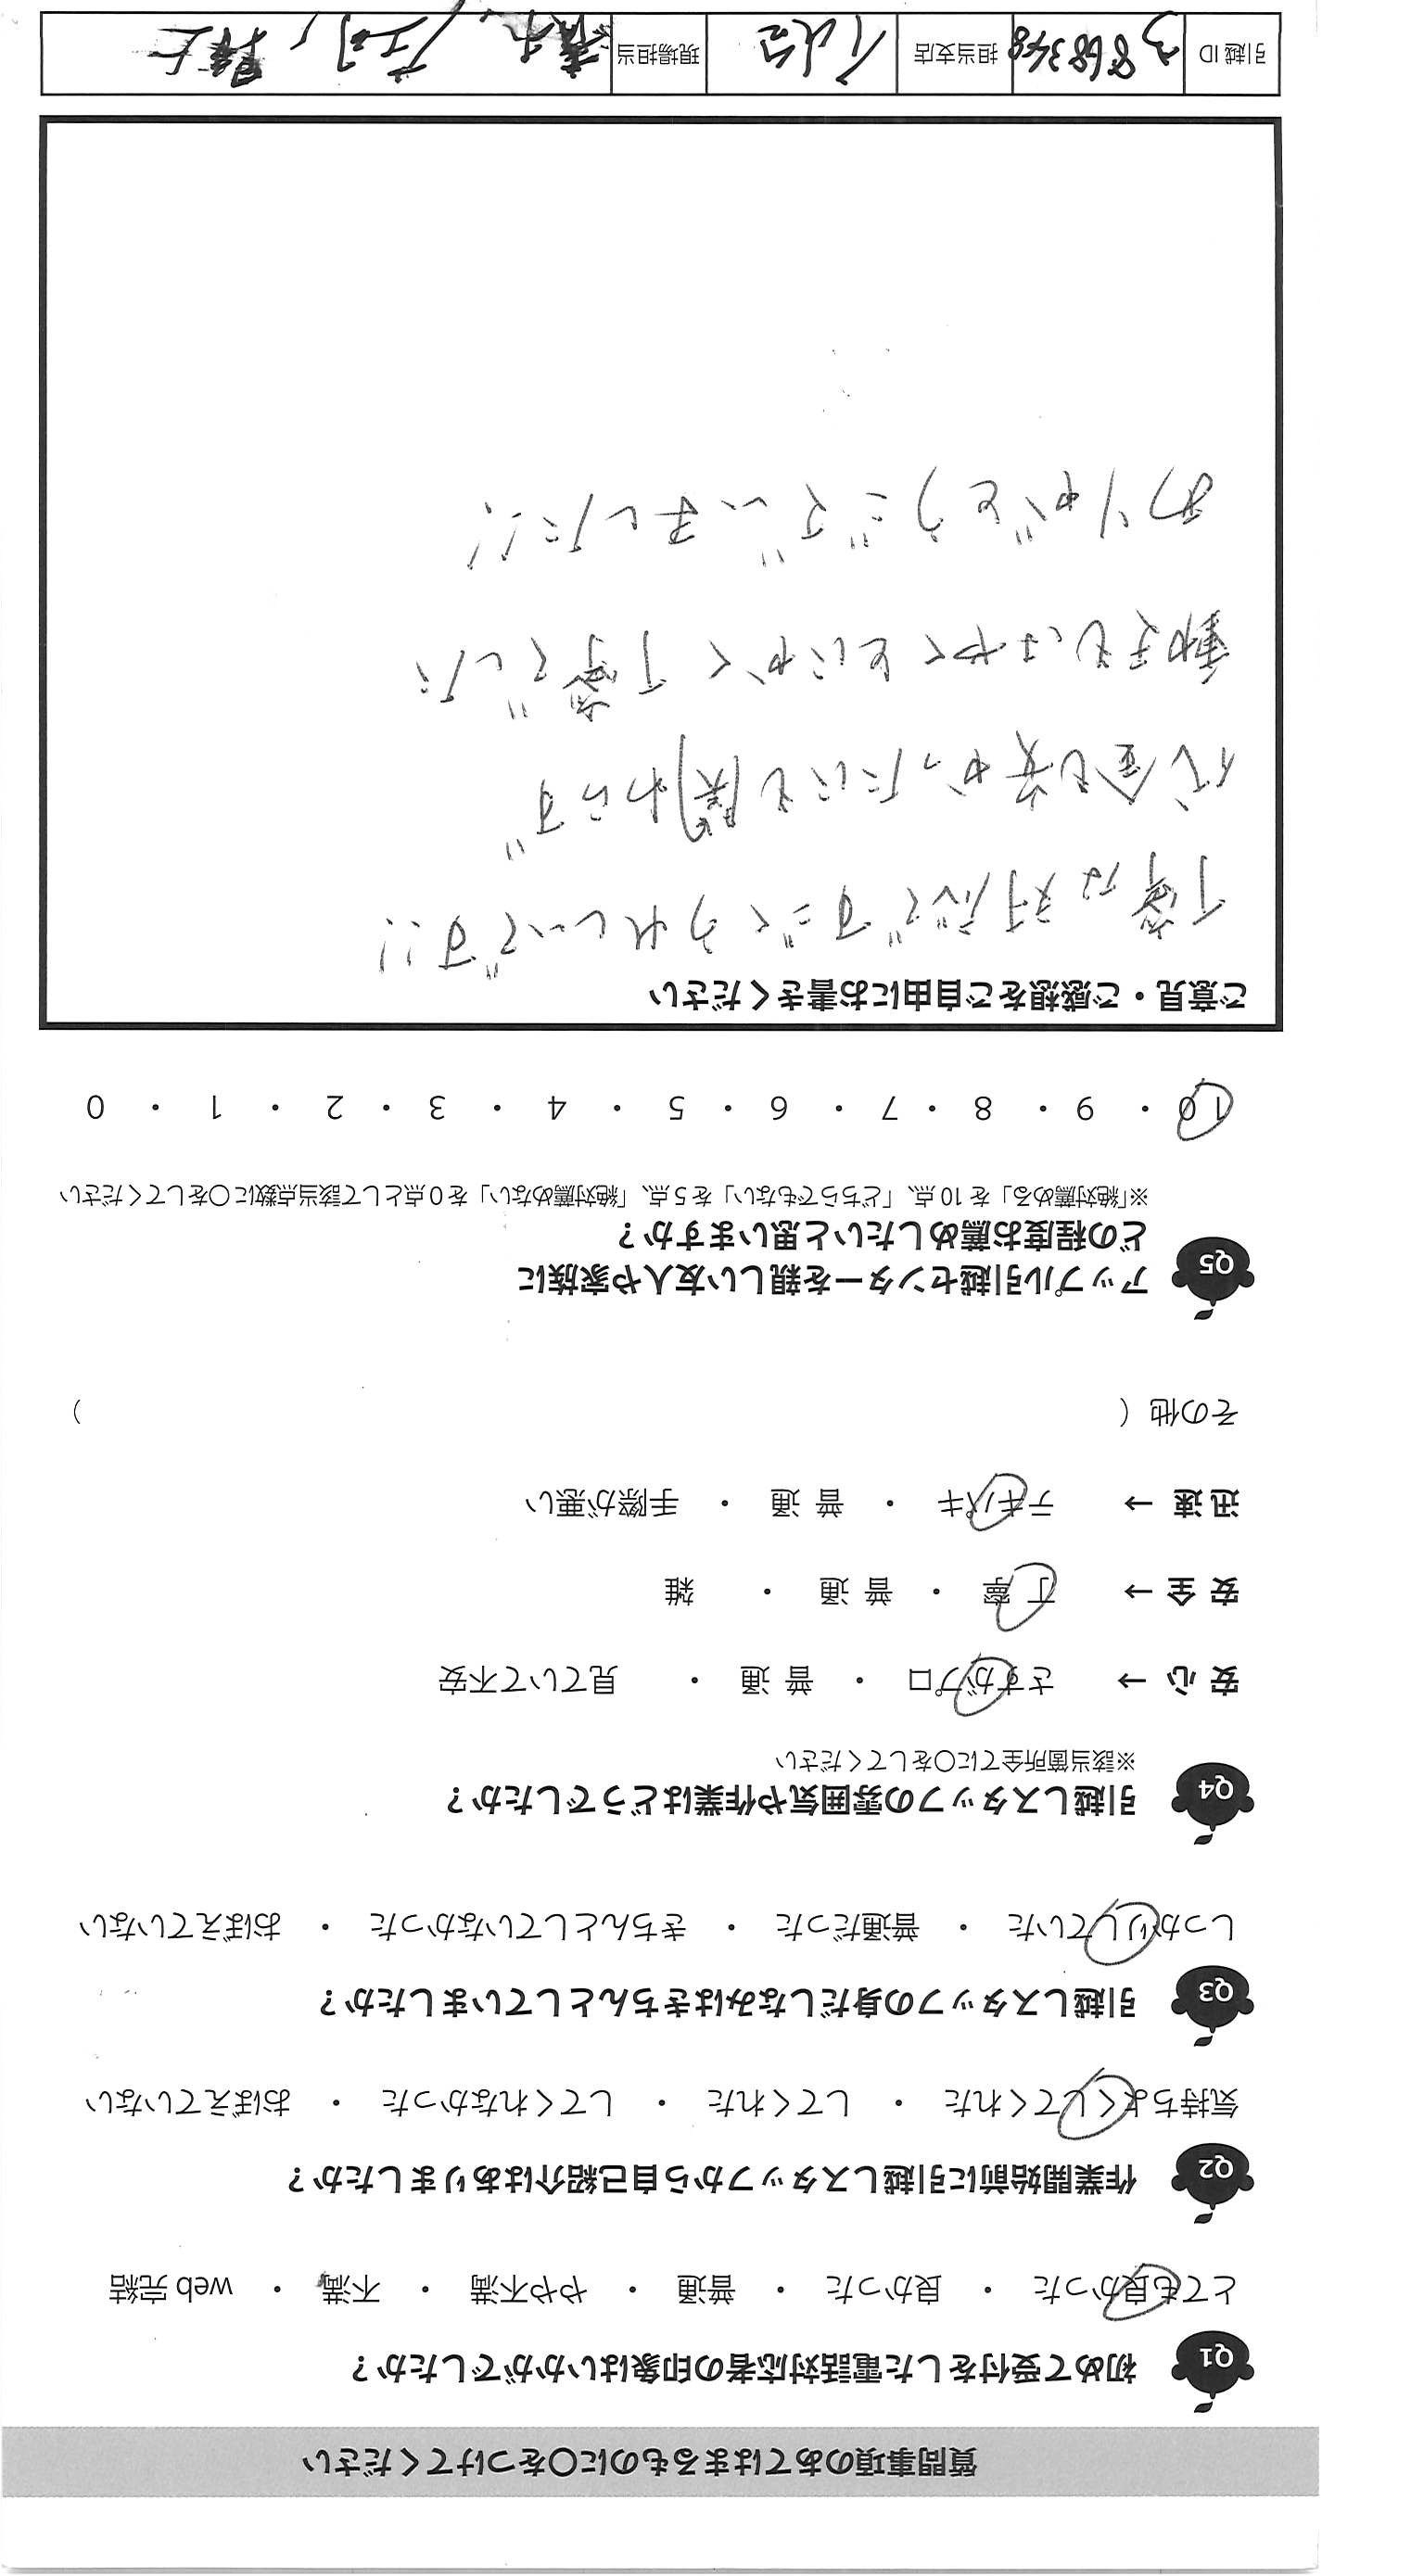 質問事項のあてはまるものに〇をつけてください
Q1 初めて受付をした電話対応者の印象はいかがでしたか？
とても良かった ・ 良かった ・ 普通 ・ やや不満 ・ 不満 ・ web 完結
Q2 作業開始前に引越しスタッフから自己紹介はありましたか？
気持ちよくしてくれた ・ してくれた ・ してくれなかった ・ おぼえていない
Q3 引越しスタッフの身だしなみはきちんとしていましたか？
しっかりしていた ・ 普通だった ・ きちんとしていなかった ・ おぼえていない
Q4 引越しスタッフの雰囲気や作業はどうでしたか？
※該当箇所全てに〇をしてください
安 心 → さすがプロ ・ 普 通 ・ 見ていて不安
安 全 → 丁 寧 ・ 普 通 ・ 雑
迅 速 → テキパキ ・ 普 通 ・ 手際が悪い
その他（ ）
Q5 アップル引越センターを親しい友人や家族に
どの程度お薦めしたいと思いますか？
※「絶対薦める」を 10 点、「どちらでもない」を 5 点、「絶対薦めない」を 0 点として該当点数に〇をしてください
10 ・ 9 ・ 8 ・ 7 ・ 6 ・ 5 ・ 4 ・ 3 ・ 2 ・ 1 ・ 0
ご意見・ご感想をご自由にお書きください
丁寧な対応ですごくうれしいです!!
代金も安かったにも関わらず
動きもはやくとにかく丁寧でした
ありがとうございました!!
引越 ID 3868348 担当支店 仙台 現場担当